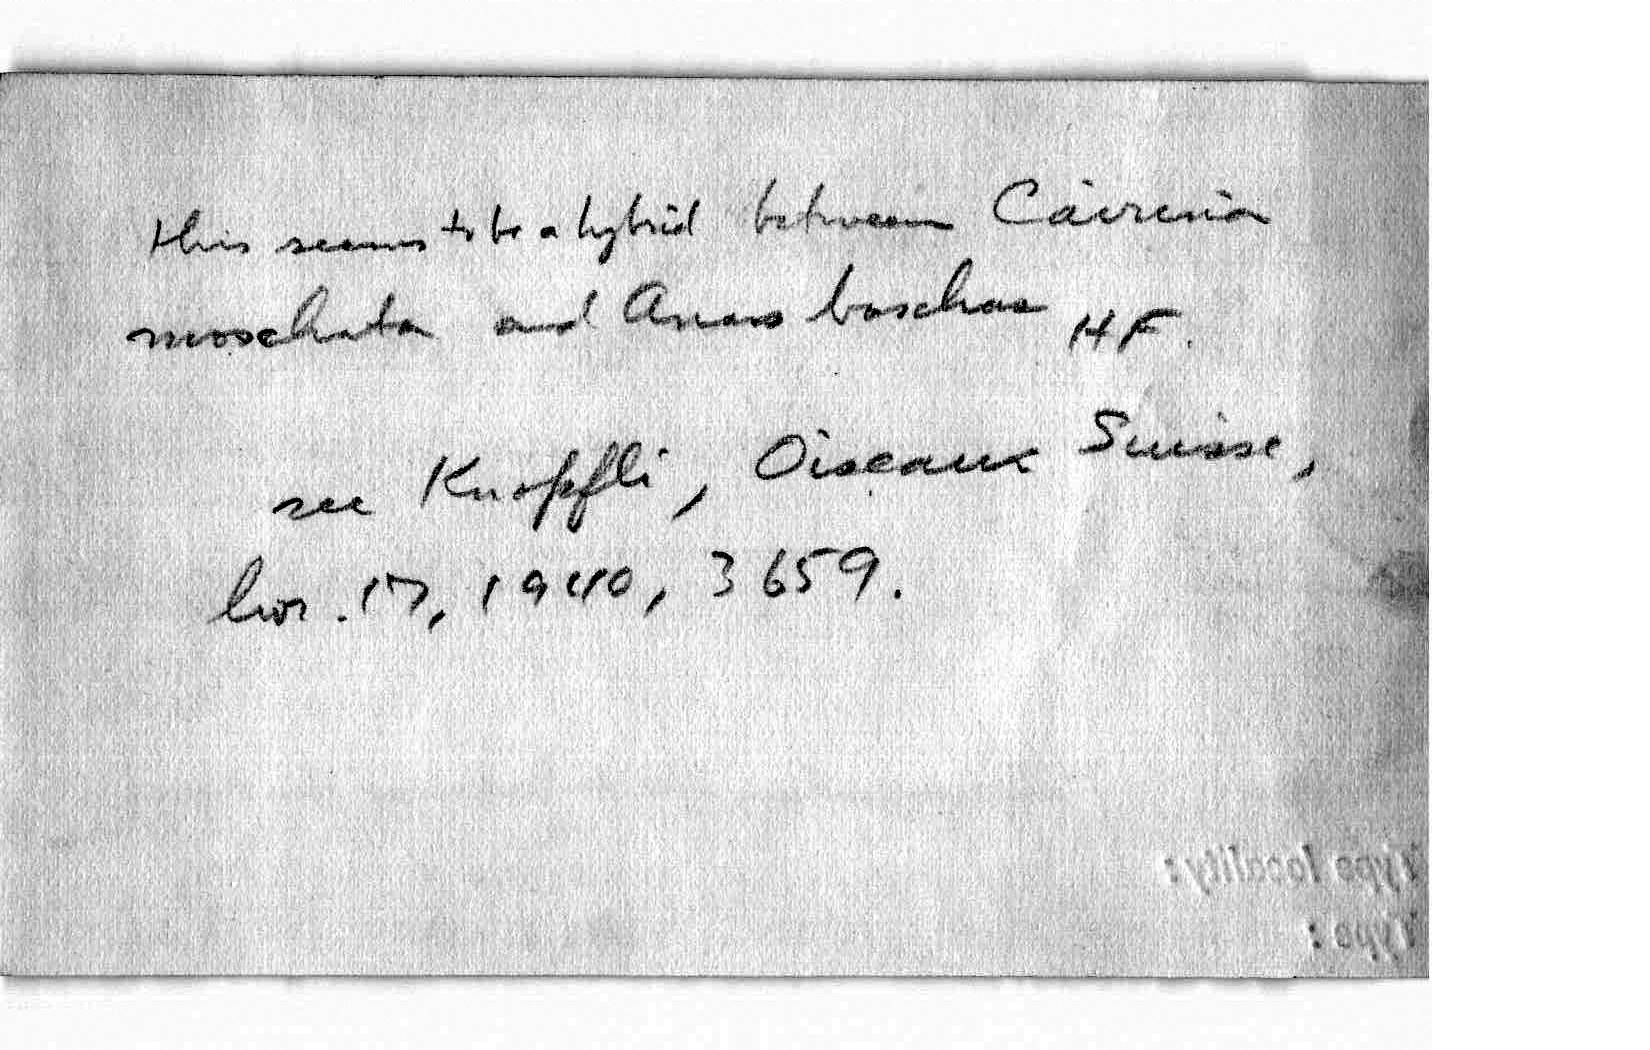 this seems to be a hybrid between Cairina
moschata and Anas boschas HF.
see Knopfli, Oiseaux Suisse,
livr. 17, 1940, 3659.
Type locality :
Type :